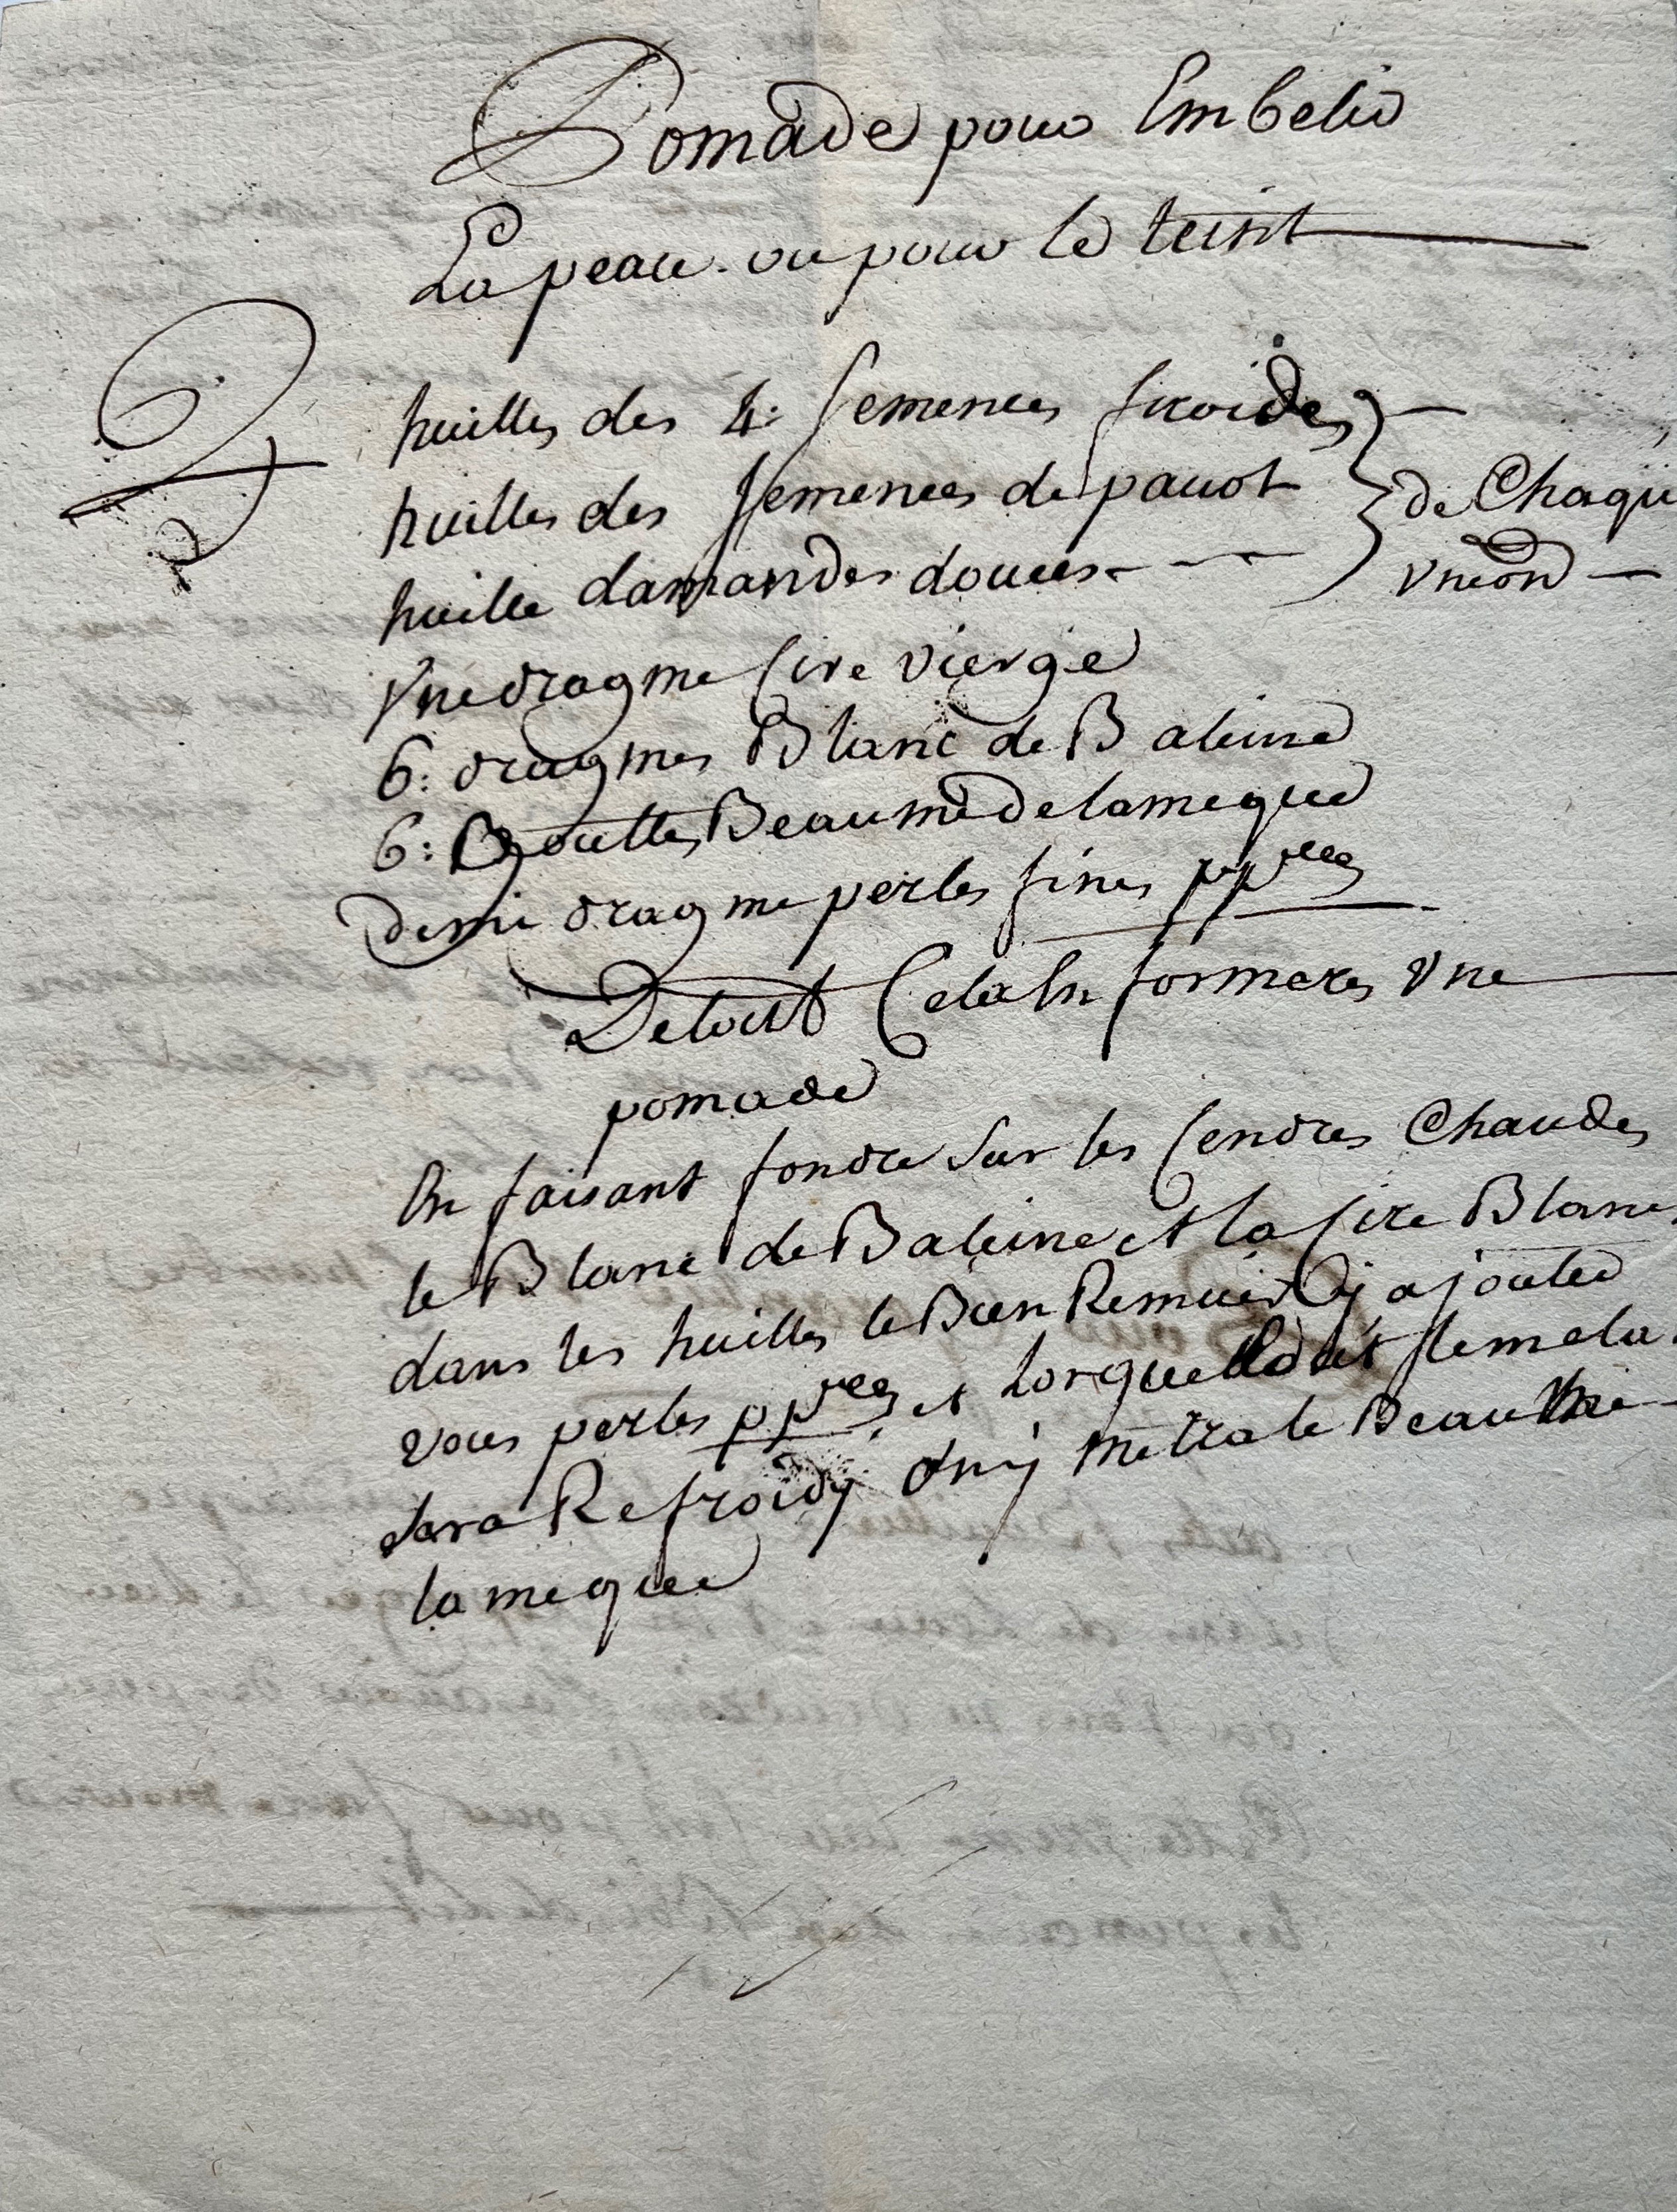 Pomade pour Embelir
La peau. ou pour le teint
huilles des 4: semences froides
huilles des semences de pavot
huille damandes douces
de Chaque
vne on
vne dragme sire vierge
6: dragmes Blanc de Baleine
6: Gouttes Beaume de lameque
demi dragme perles fines pp rees
De tout Cela En formeres vne
pomade
En faisant fondre sur les Cendres Chaudes
le Blanc de Baleine et la sire Blanc
dans les huilles le Bien Remuer y ajouter
vous perles pp rees et lorque tout
sera Refroidy on y metra le Beaume
la meque